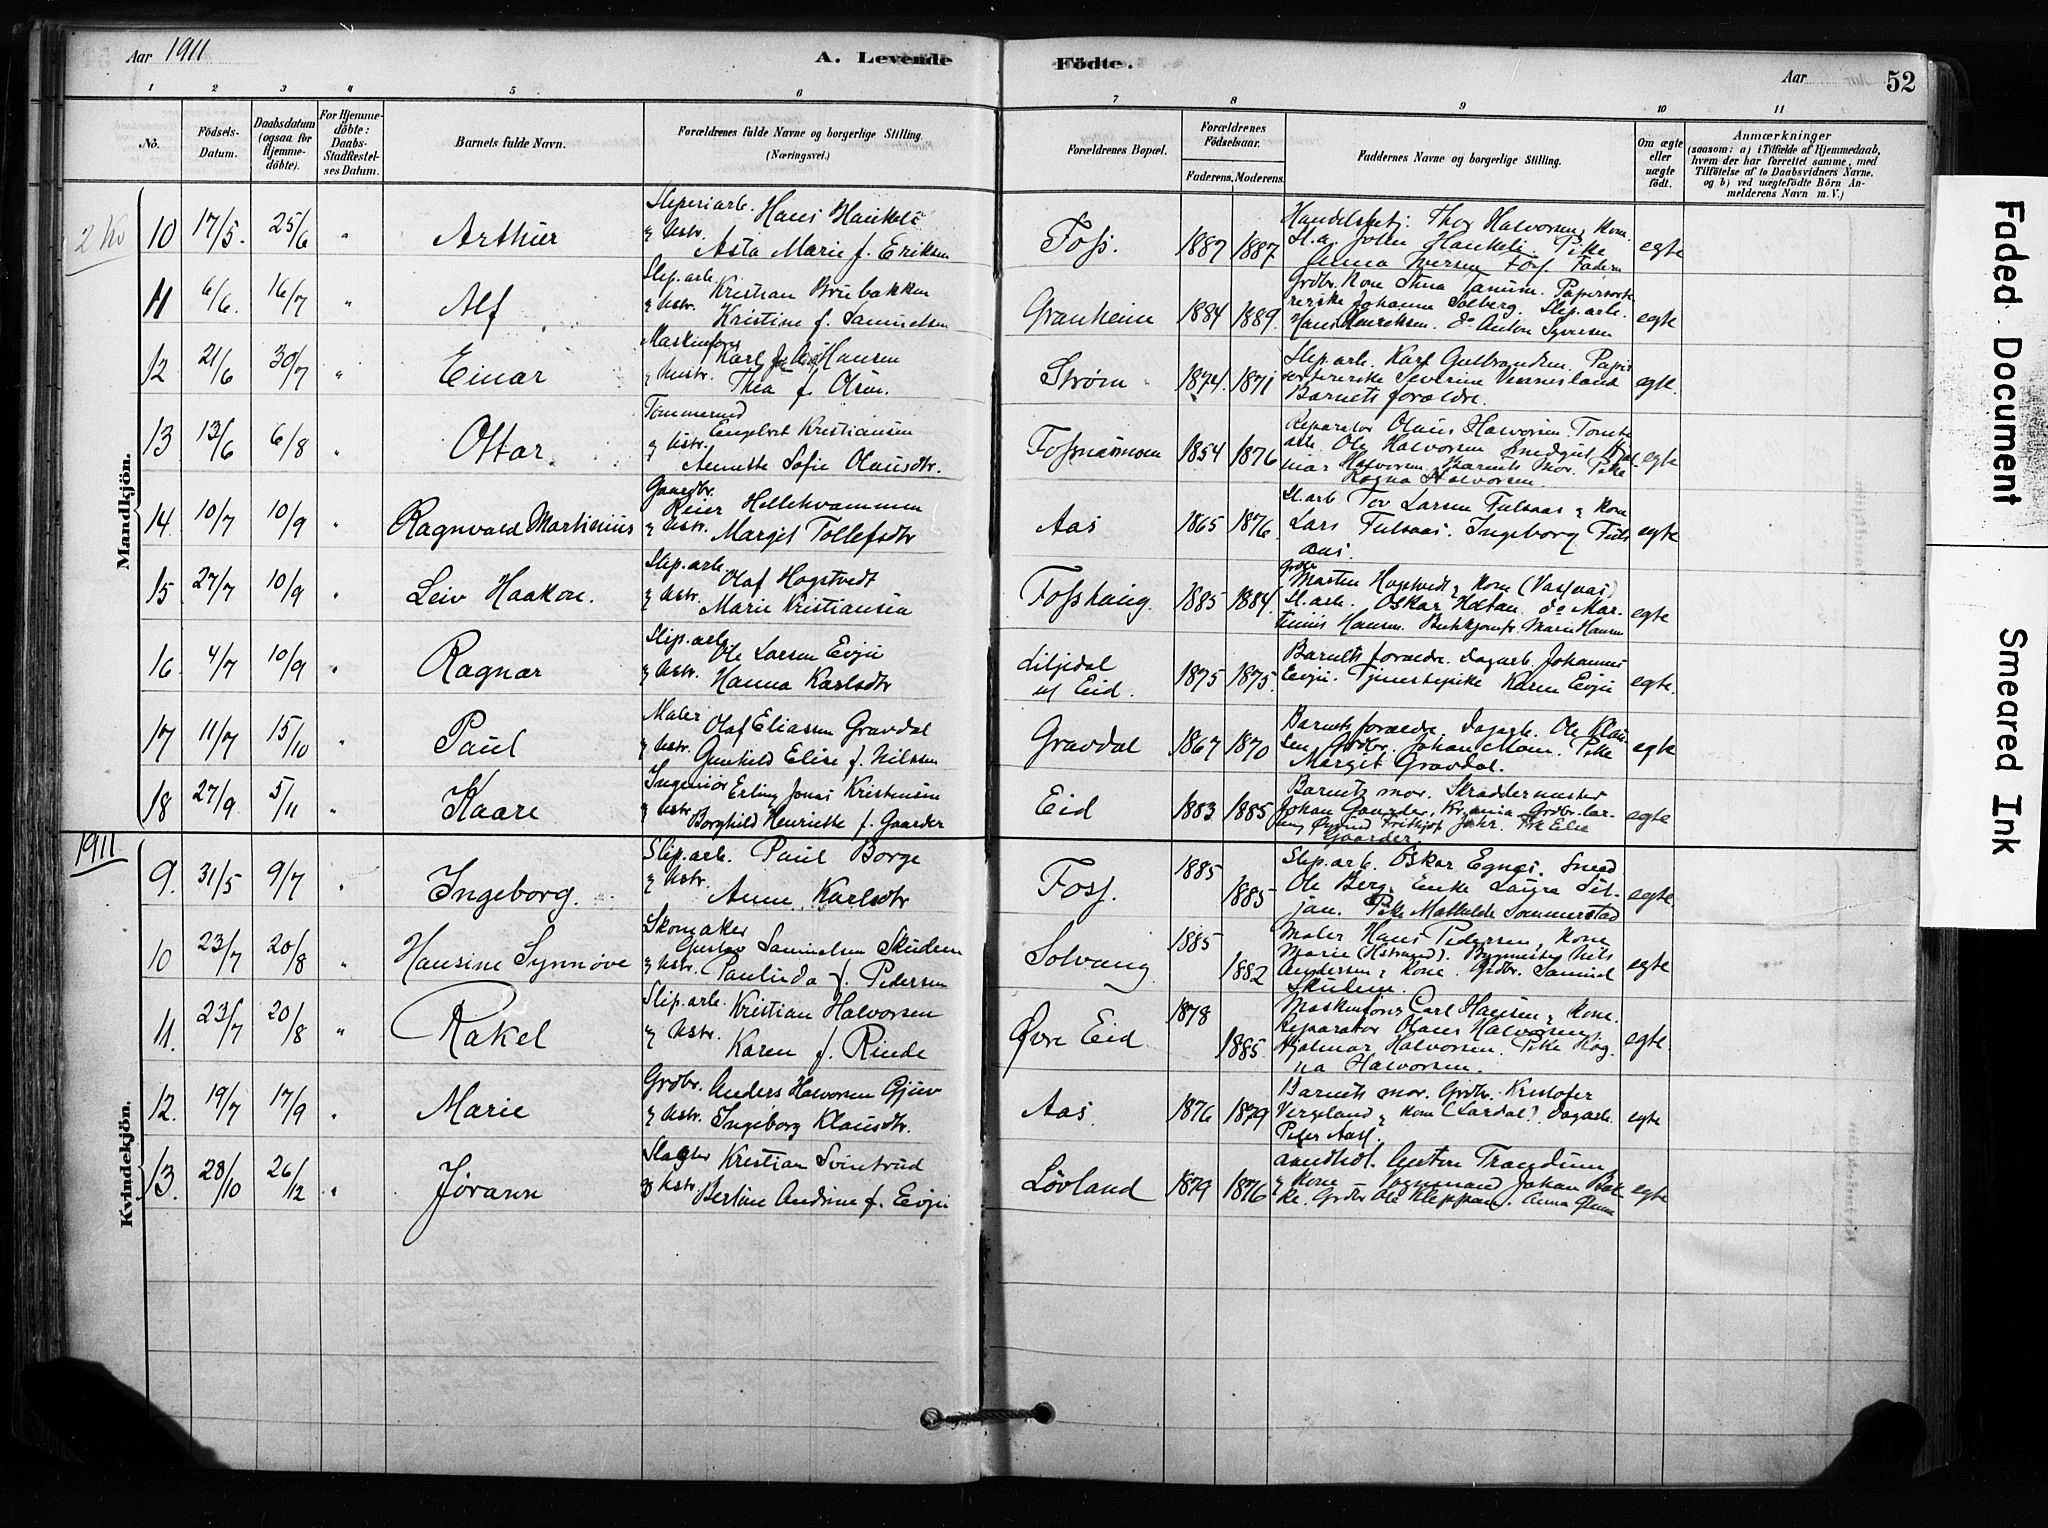 Aar 1911
A. Levende
Fødte.
Aar
52
1 2 3 4 5 6 7 8 9 10 11
No.
Födsels-Datum.
Daabsdatum (ogsaa for Hjemme-döbte).
For Hjemme-döbte: Daabs-Stadfæstel-ses Datum.
Barnets fulde Navn.
Forældrenes fulde Navne og borgerlige Stilling.
(Næringsvei.)
Forældrenes Bopæl.
Forældrenes Fødselsaar.
Faderens. Moderens.
Faddernes Navne og borgerlige Stilling.
Om ægte eller uægte født.
Anmærkninger
(saasom: a) i Tilfælde af Hjemmedaab, hvem der har forrettet samme, med Tilföielse af to Daabsvidners Navne, og b) ved uægtefödte Börn An-melderens Navn m. V.)
Mandkjön.
10 17/5. 25/6 " Arthur
Sliperiarb. Hans Haukeli
& Hstr. Asta Marie f. Eriksen
Foss. 1887 1887
Handelsbetj. Thor Halvorsen & kone.
Sl.a. John Haukeli. Pike
Anna Iversen Foss. Faderen
egte
11 6/6. 16/7 " Alf
Slip.arb. Kristian Brubakken
& Hstr. Kristine f. Samuelsen
Granheim 1884 1889.
Grdbr. Kone Stina Tanum. Papirsorte
rerske Johanne Solberg. Slip.arb.
Hans Henriksen. do Anton Syversen
egte
12 21/6 30/7 " Einar
Maskinfører Karl Johan Hansen
& Hustr. Thea f. Olsen.
Strøm 1874. 1871
Slip.arb. Karl Gulbrandsen. Papir
sortererske Severine Vernesland
Barnets forældre.
egte.
13 13/6 6/8 " Ottar.
Tømmermd Engebret Kristiansen
& Hstr. Annette Sofie Olausdtr.
Fossnæsmoen 1854 1876
Reparatør Olaus Halvorsen. Tomte
arb. Ole Halvorsen
Halvorsen. Barnets mor. Pike
Ragna Halvorsen.
egte
14. 10/7 10/9 " Ragnvald Martinius
Gaardbr. Reier Hellekvammen
& Hstr. Margit Tollefsdtr
Aas 1865 1876.
Sl.arb. Tov Larsen Fulsaas & kone
Lars Fulsaas. Ingeborg Fuls
aas.
egte
15. 27/7 10/9 " Leiv Haakon.
Slip.arb. Olaf Hogstvedt
& Hstr. Marie Kristiansen
Fosshaug. 1885 1884.
Grdbr. Marten Hogstvedt & kone (Vasvas)
Sl.arb. Oskar Holtan. do Mar-
tinius Hansen. Butikjomfr. Marie Hansen
egte
16 4/7 10/9 " Ragnar
Slip.arb. Ole Larsen Evju
& Hstr. Hanna Karlsdtr
Liljedal
u/ Eid. 1875 1875.
Barnets forældre. Dagarb. Johannes
Evju. Tjenestepike Karen Evju
egte.
17 11/7 15/10 " Paul
Maler Olaf Eliassen Gravdal
& Hstr. Gunhild Elise f. Nilssen
Gravdal 1867 1870
Barnets forældre. Dagarb. Ole Klau
sen Grdbr. Johan Moen. Pike
Margit Gravdal.
egte
18 27/9. 5/11 " Kaare
Ingeniør Erling Jonas Kristensen
& Hstr. Borghild Henriette f. Gaarder
Eid 1883 1885
Barnets mor. Skræddermester
Johan Gaarder, Kr.ania. Grdbr.
Øyvind Fritkjof Jahr. Frk Else
Gaarder.
egte
1911
Kvindekjön.
9. 31/5 9/7 " Ingeborg.
Slip.arb. Paul Borge
& Hstr. Anne Karlsdtr
Foss. 1885 1885
Slip.arb. Oskar Egnes. Smed
Ole Berg. Enke Laura Sil-
jan. Pike Mathilde Sommerstad
egte.
10 23/7 20/8 " Hansine Synnøve
Skomaker Gustav Samuelsen Skudem
& Hstr. Paulinda f. Pedersen
Solvang 1885 1882
Maler Hans Pedersen & kone
Marie. Bygmester Nils
Andersen & kone. Grdbr. Samuel
egte
11. 23/7 20/8 " Rakel
Slip.arb. Kristian Halvorsen
& Hstr. Karen f. Rinde
Øvre Eid 1878 1885
Maskinfører Carl Hansen & kone.
Reparatør Olaus Halvorsen
Hjalmar Halvorsen. Pike Rag-
na Halvorsen.
egte.
12. 19/7 17/9 " Marie
Grdbr. Anders Halvorsen Gjuv
& Hstr. Ingeborg Klausdtr.
Aas. 1876 1879
Barnets mor. Grdbr. Kristofer
Vergeland & kone (Lardal). Dagarb.
Peter Aas.
egte
13. 28/10 26/12 " Jørann
Slagter Kristian Svinterud
& Hstr. Bertine Andrine f. Evju
Løvland 1879 1876
Anton Trandum
& kone. Johan Bak
ke. Grdbr Ole Kleppan. Anna
egte
Faded Document
Smeared Ink